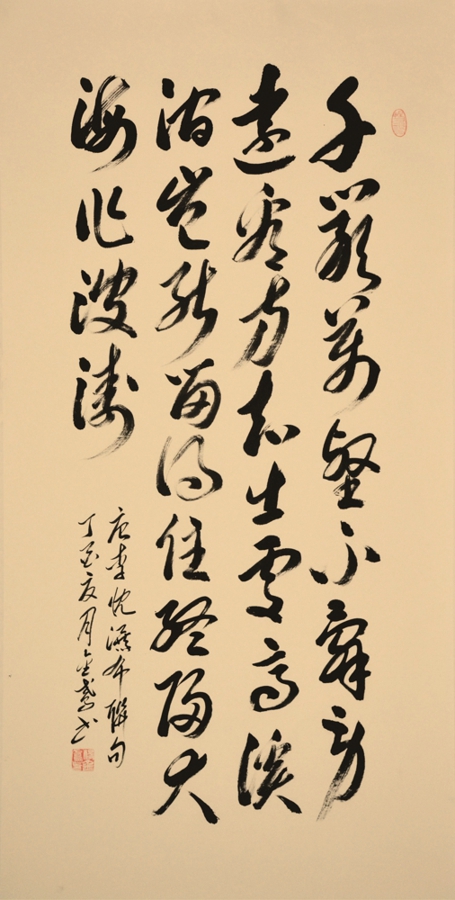 千巖萬壑不辭勞
遠看方知出處高溪
澗豈能留得住終歸大
海作波濤
唐李忱瀑布聯句
丁酉夏月書